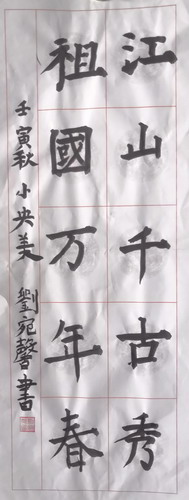 江山千古秀
祖國万年春
壬寅秋小央美 劉宛馨書